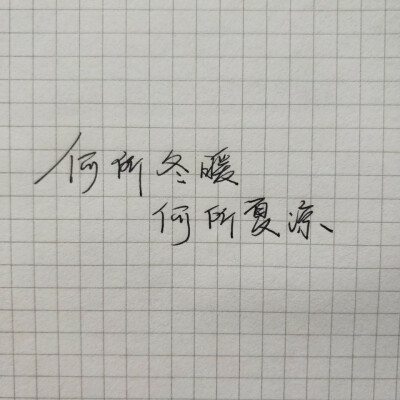 何所冬暖
何所夏凉、